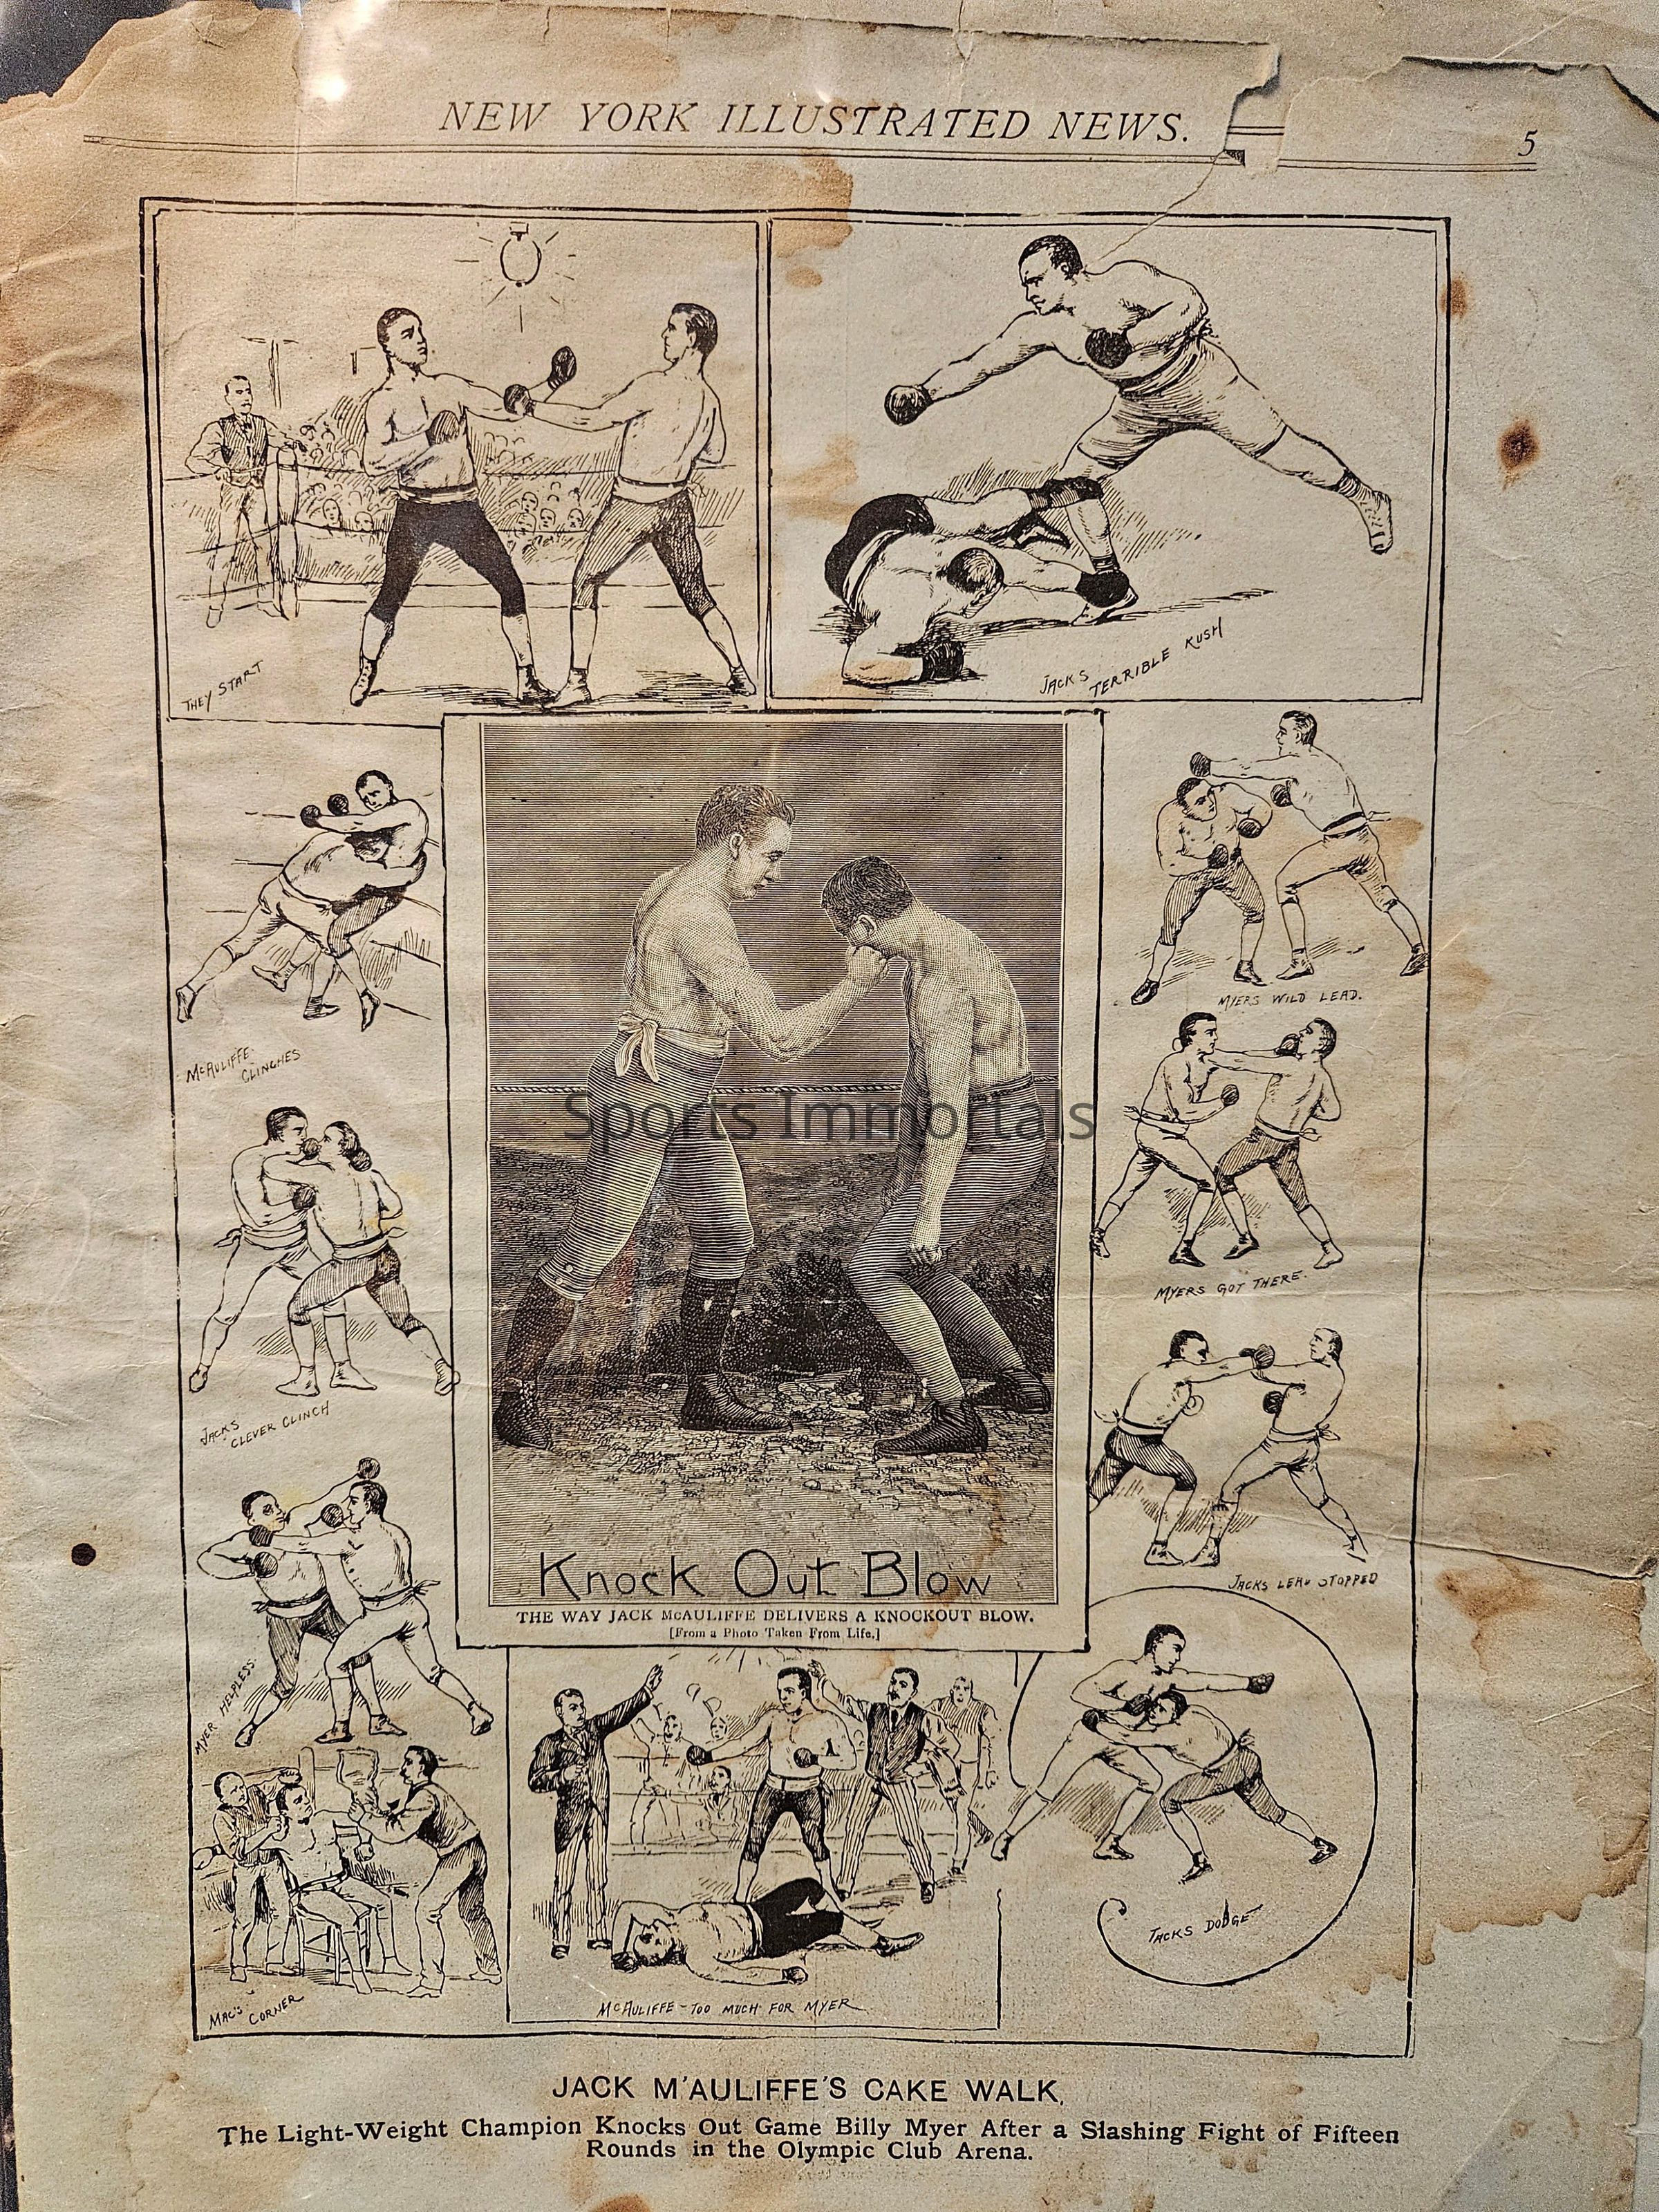 NEW YORK ILLUSTRATED NEWS.
5
THEY START
JACKS
TERRIBLE RUSH
McAULIFFE
CLINCHES
MYERS WILD LEAD.
JACKS
CLEVER CLINCH
MYERS GOT THERE.
MYER HELPLESS.
JACKS LEAD STOPPED
Sports Immortals
Knock Out Blow
THE WAY JACK McAULIFFE DELIVERS A KNOCKOUT BLOW.
[From a Photo Taken From Life.]
MAC'S
CORNER
McAULIFFE - TOO MUCH FOR MYER
JACKS DODGE
JACK M'AULIFFE'S CAKE WALK.
The Light-Weight Champion Knocks Out Game Billy Myer After a Slashing Fight of Fifteen
Rounds in the Olympic Club Arena.